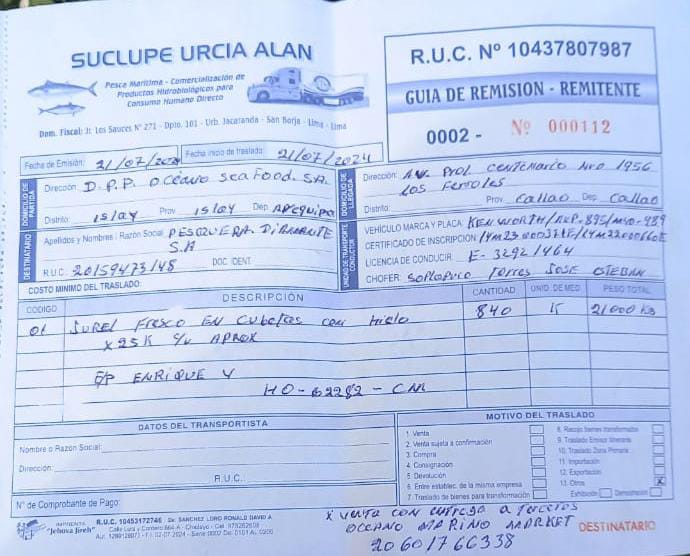 SUCLUPE URCIA ALAN
Pesca Marítima - Comercialización de
Productos Hidrobiológicos para
Consumo Humano Directo
Dom. Fiscal: Jr. Los Sauces N° 271 - Dpto. 101 - Urb. Jacaranda - San Borja - Lima - Lima
R.U.C. Nº 10437807987
GUIA DE REMISION - REMITENTE
0002 - Nº 000112
Fecha de Emisión: 21/07/2024
Fecha inicio de traslado: 21/07/2024
DOMICILIO DE PARTIDA
Dirección: D.P.P. Océano Sea Food. S.A.
Distrito: Islay Prov. Islay Dep. Arequipa
DOMICILIO DE LLEGADA
Dirección: Av. Prol Centenario Nro 1956
Los Ferroles
Distrito: Prov. Callao Dep. Callao
DESTINATARIO
Apellidos y Nombres / Razón Social: PESQUERA DIAMANTE
S.A
R.U.C. 20159473148 DOC. IDENT.
UNIDAD DE TRANSPORTE CONDUCTOR
VEHÍCULO MARCA Y PLACA: KENWORTH/
CERTIFICADO DE INSCRIPCION:
LICENCIA DE CONDUCIR: E-32921464
CHOFER: Torres Jose Esteban
COSTO MINIMO DEL TRASLADO:
CODIGO DESCRIPCIÓN CANTIDAD UNID. DE MED. PESO TOTAL
01 Jurel Fresco EN Cubetas con hielo 840 K 21000 Kg
x 25 K c/u APROX
E/P ENRIQUE Y
HO-62282-CM
DATOS DEL TRANSPORTISTA
Nombre o Razón Social:
Dirección:
R.U.C.
N° de Comprobante de Pago:
MOTIVO DEL TRASLADO
1. Venta
2. Venta sujeta a confirmación
3. Compra
4. Consignación
5. Devolución
6. Entre establec. de la misma empresa
7. Traslado de bienes para transformación
8. Recojo bienes transformados
9. Traslado Emisor Itinerante
10. Traslado Zona Primaria
11. Importación
12. Exportación
13. Otros X
Exhibición Demostración
IMPRENTA
"Jehova Jireh"
R.U.C. 10453172746
x venta con entrega a terceros
OCEANO MARINO MARKET
20601766338
DESTINATARIO